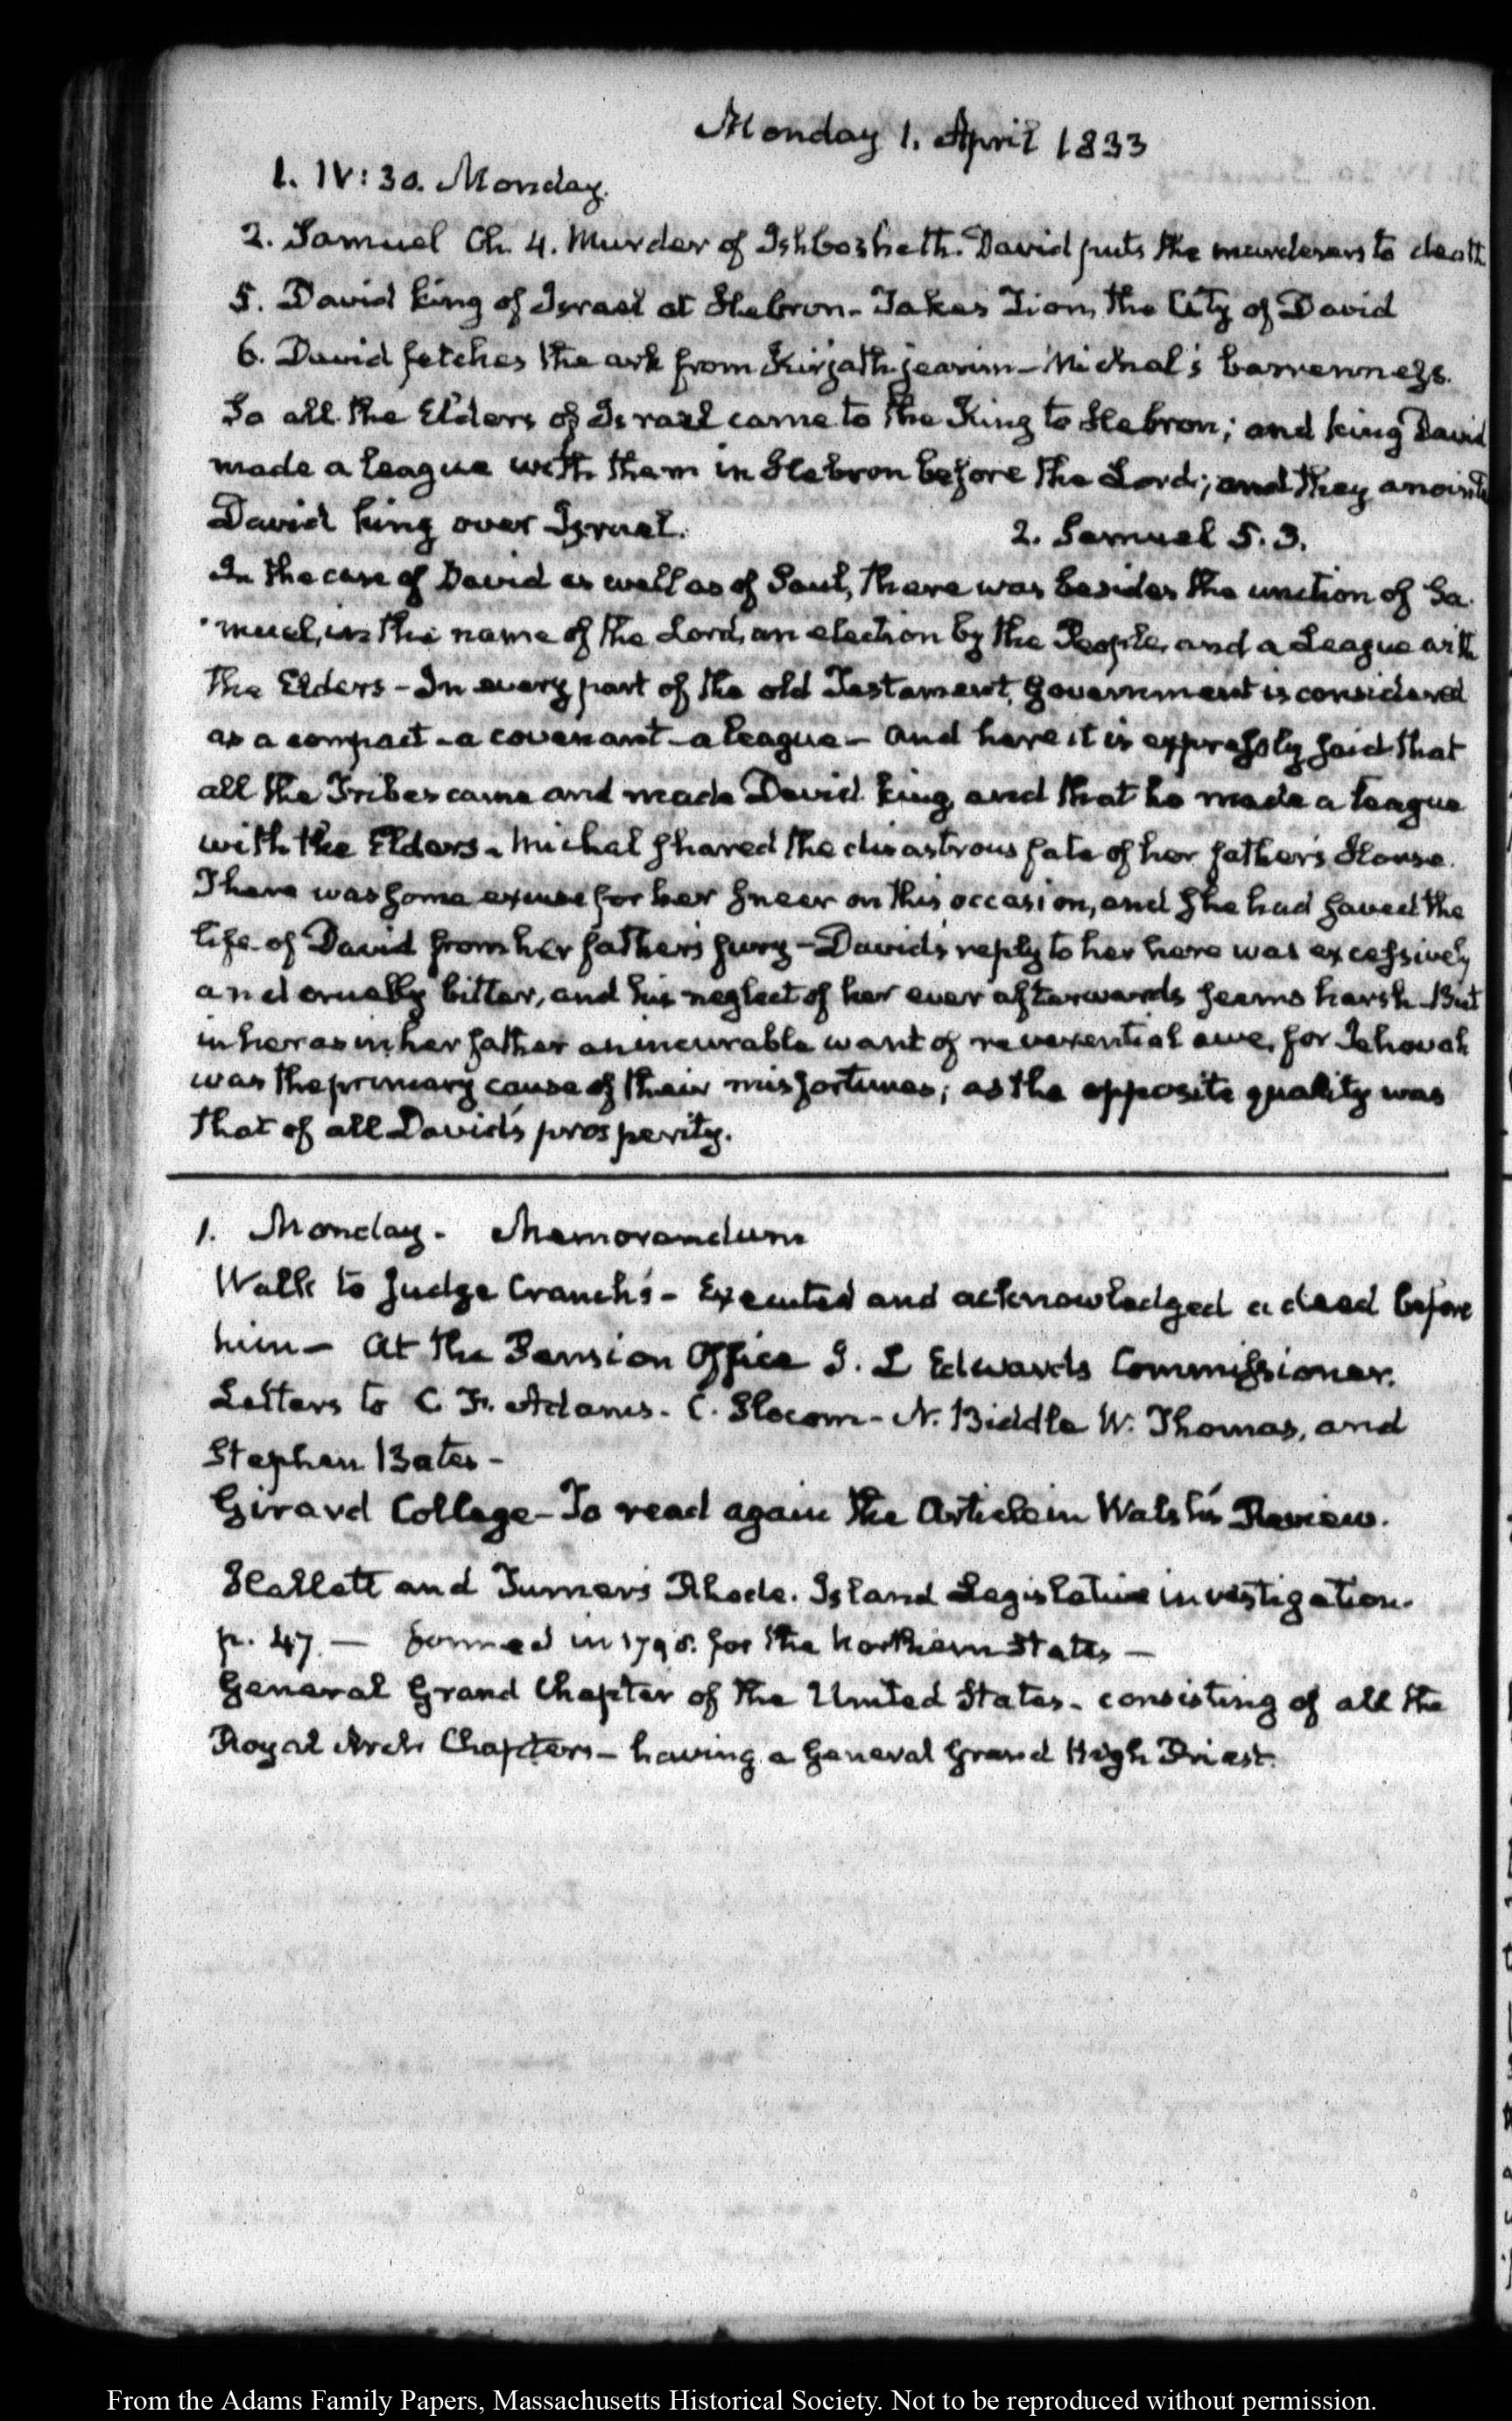 Monday 1. April 1833
1. IV: 30. Monday.
2. Samuel Ch. 4. Murder of Ishbosheth. David puts the murderers to death
5. David king of Israel at Hebron - Takes Zion, the City of David
6. David fetches the ark from Kirjath-jearim - Michal's barrenness.
So all the Elders of Israel came to the King to Hebron; and king David
made a league with them in Hebron before the Lord; and they anointed
David king over Israel. 2. Samuel 5. 3.
In the case of David as well as of Saul, there was besides the unction of Sa-
muel, in the name of the Lord, an election by the People, and a League with
the Elders - In every part of the old Testament, Government is considered
as a compact - a covenant - a league - and here it is expressly said that
all the Tribes came and made David king, and that he made a league
with the Elders - Michal shared the disastrous fate of her father's House.
There was some excuse for her sneer on this occasion, and she had saved the
life of David from her father's fury - David's reply to her here was excessively
and cruelly bitter, and his neglect of her ever afterwards seems harsh - But
in her as in her father an incurable want of reverential awe, for Jehovah
was the primary cause of their misfortunes; as the opposite quality was
that of all David's prosperity.
1. Monday. Memorandum
Walk to Judge Cranch's - Executed and acknowledged a deed before
him - At the Pension Office J. L Edwards Commissioner.
Letters to C. F. Adams - C. Slocom - N. Biddle W. Thomas, and
Stephen Bates -
Girard College - To read again the Article in Walsh's Review.
Hallett and Turner's Rhode. Island Legislative investigation.
p. 47. - formed in 1798. for the Northern States -
General Grand Chapter of the United States - consisting of all the
Royal Arch Chapters - having a General Grand High Priest.
From the Adams Family Papers, Massachusetts Historical Society. Not to be reproduced without permission.